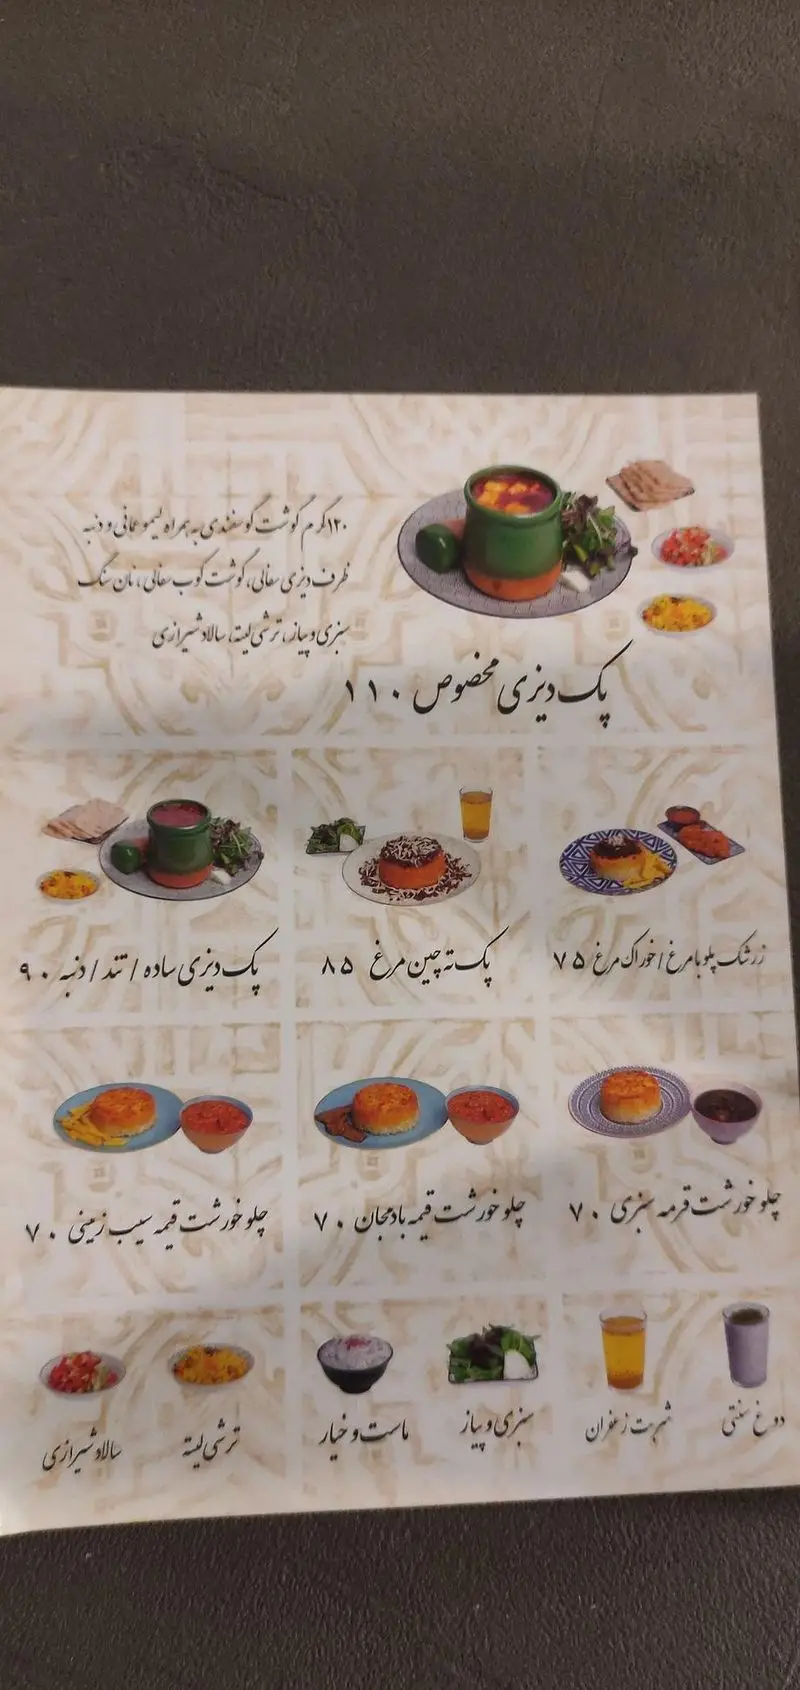 ۱۲۰گرم گوشت گوسفندی به همراه لیمو عمانی و دنبه
ظرف دیزی سفالی، گوشت کوب سفالی، نان سنگ
سبزی و پیاز، ترشی لیته، سالاد شیرازی
پک دیزی مخصوص ۱۱۰
زرشک پلو با مرغ / خوراک مرغ ۷۵
پک ته چین مرغ ۸۵
پک دیزی ساده / تند / دنبه ۹۰
چلو خورشت قرمه سبزی ۷۰
چلو خورشت قیمه بادمجان ۷۰
چلو خورشت قیمه سیب زمینی ۷۰
دوغ سنتی
شربت زعفران
سبزی و پیاز
ماست و خیار
ترشی لیته
سالاد شیرازی